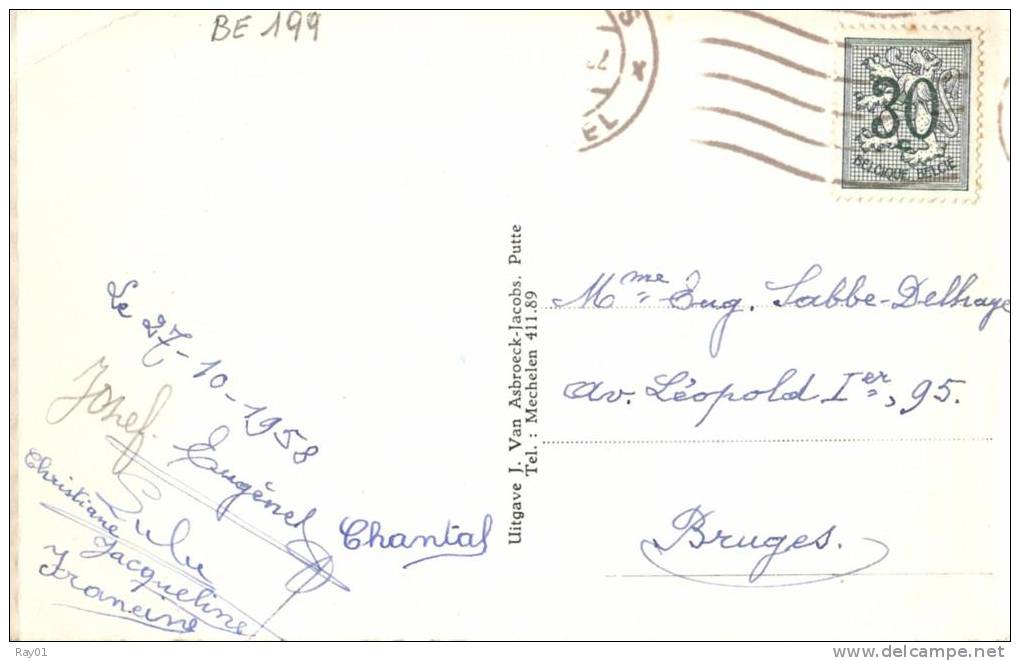 BE 199
30
BELGIQUE BELGIË
Uitgave J. Van Asbroeck-Jacobs. Putte
Tel. : Mechelen 411.89
Mme Eug. Sabbe-Delhaye
av. Léopold Ier, 95.
Bruges.
Le 27-10-1958
Josef.
Eugénie
Lulu
Christiane
Chantal
Jacqueline
Francine
Ray01
www.delcampe.net